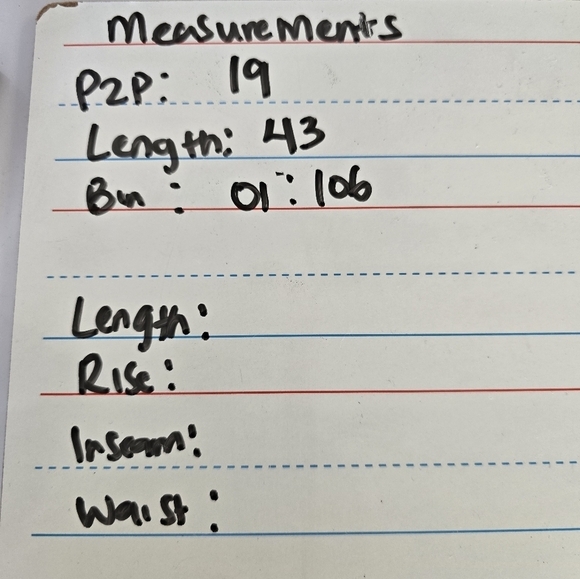 Measurements
P2P: 19
Length: 43
Bin: 01: 106
Length:
Rise:
Inseam:
Waist: